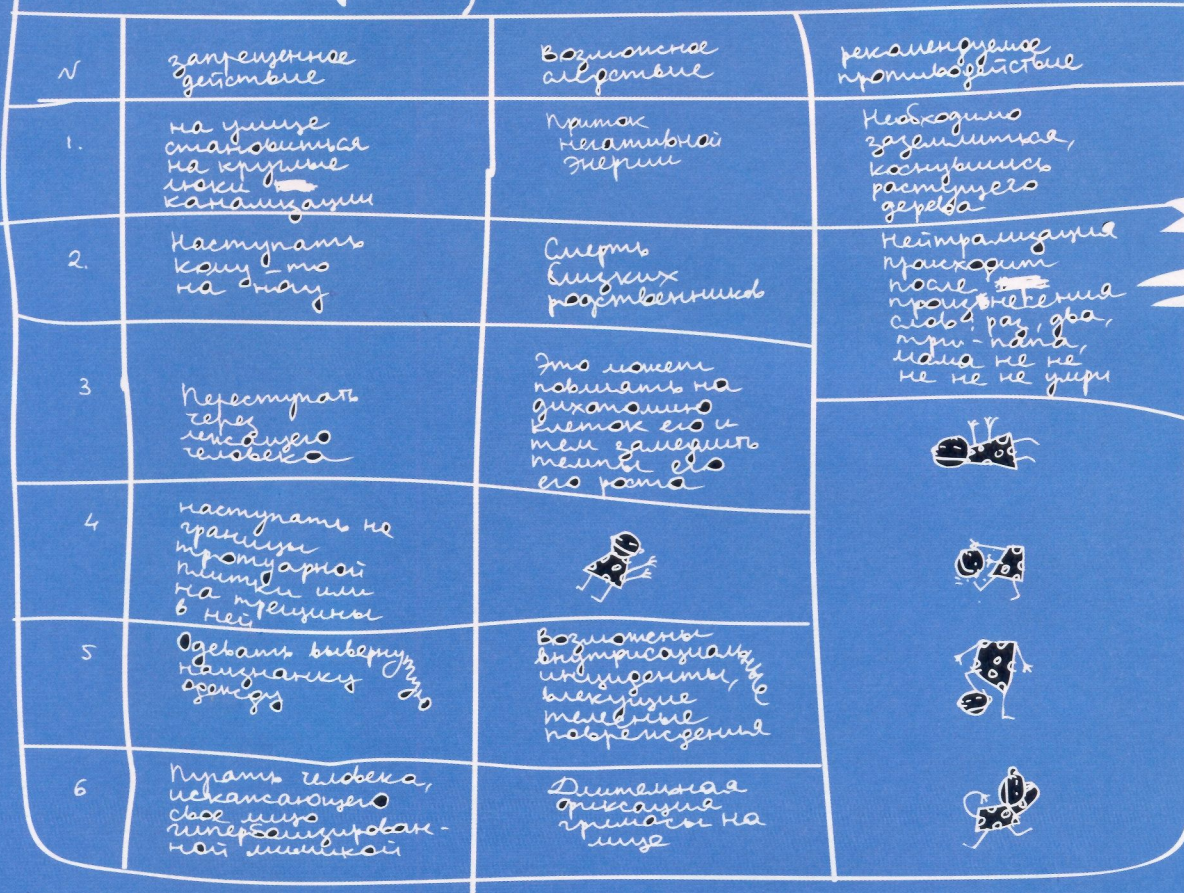 N
запрещенное
действие
возможное
следствие
рекомендуемое
противодействие
1.
на улице
становиться
на круглые
люки
канализации
Приток
негативной
энергии
Необходимо
заземлиться,
коснувшись
растущего
дерева
2.
Наступать
кому-то
на ногу
Смерть
близких
родственников
Нейтрализация
происходит
после
произнесения
слов: раз, два,
три - папа,
мама не не
не не не умри
3
Переступать
через
лежащего
человека
Это может
повлиять на
дихотомию
клеток его и
тем замедлить
темпы его
его роста
4
наступать на
границы
тротуарной
плитки или
на трещины
в ней
5
Одевать вывернутую
наизнанку
одежду
Возможны
внутрисоциальные
инциденты,
влекущие
телесные
повреждения
6
Пугать человека,
искажающего
свое лицо
гиперболизирован-
ной мимикой
Длительная
фиксация
гримасы на
лице